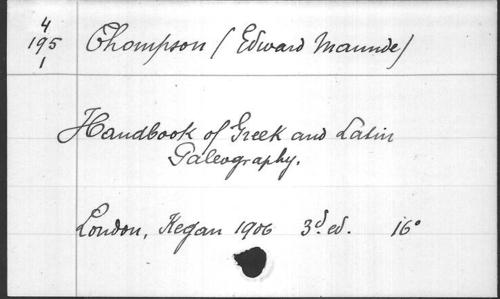 4
195
1
Thompson (Edward Maunde)
Handbook of Greek and Latin
Paleography.
London, Kegan 1906 3d ed. 16°